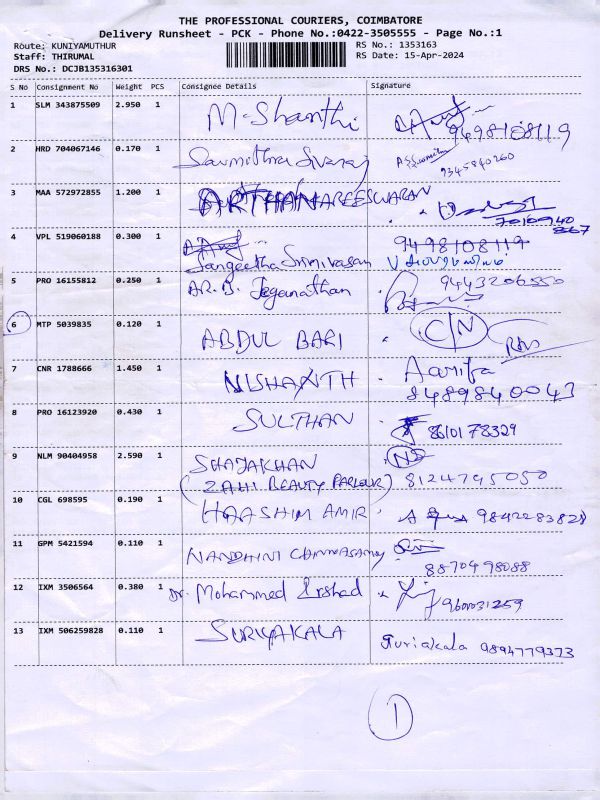 THE PROFESSIONAL COURIERS, COIMBATORE
Delivery Runsheet - PCK - Phone No.:0422-3505555 - Page No.:1
Route: KUNIYAMUTHUR
Staff: THIRUMAL
DRS No.: DCJB135316301
RS No.: 1353163
RS Date: 15-Apr-2024
S No Consignment No Weight PCS Consignee Details Signature
1 SLM 343875509 2.950 1 M-Shanthi 9498108119
2 HRD 704067146 0.170 1 Sowmithra Sivaraj 9345840260
3 MAA 572972855 1.200 1 ARTHANAREESWARAN 7010940867
4 VPL 519060188 0.300 1 Sangeetha Srinivasan 9498108119
5 PRO 16155812 0.250 1 AR. B. Jeganathan 9443206550
6 MTP 5039835 0.120 1 ABDUL BARI C/N
7 CNR 1788666 1.450 1 NISHANTH Aarifa
8489840043
8 PRO 16123920 0.430 1 SULTHAN 8610178329
9 NLM 90404958 2.590 1 SHAJAKHAN NS
(ZAHI BEAUTY PARLOUR) 8124795050
10 CGL 698595 0.190 1 HAASHIM AMIR 9842283828
11 GPM 5421594 0.110 1 NANDHINI CHINNASAMY
8870498088
12 IXM 3506564 0.380 1 Dr. Mohammed Irshad 9600031259
13 IXM 506259828 0.110 1 SURIYAKALA Suriakala 9894779373
1